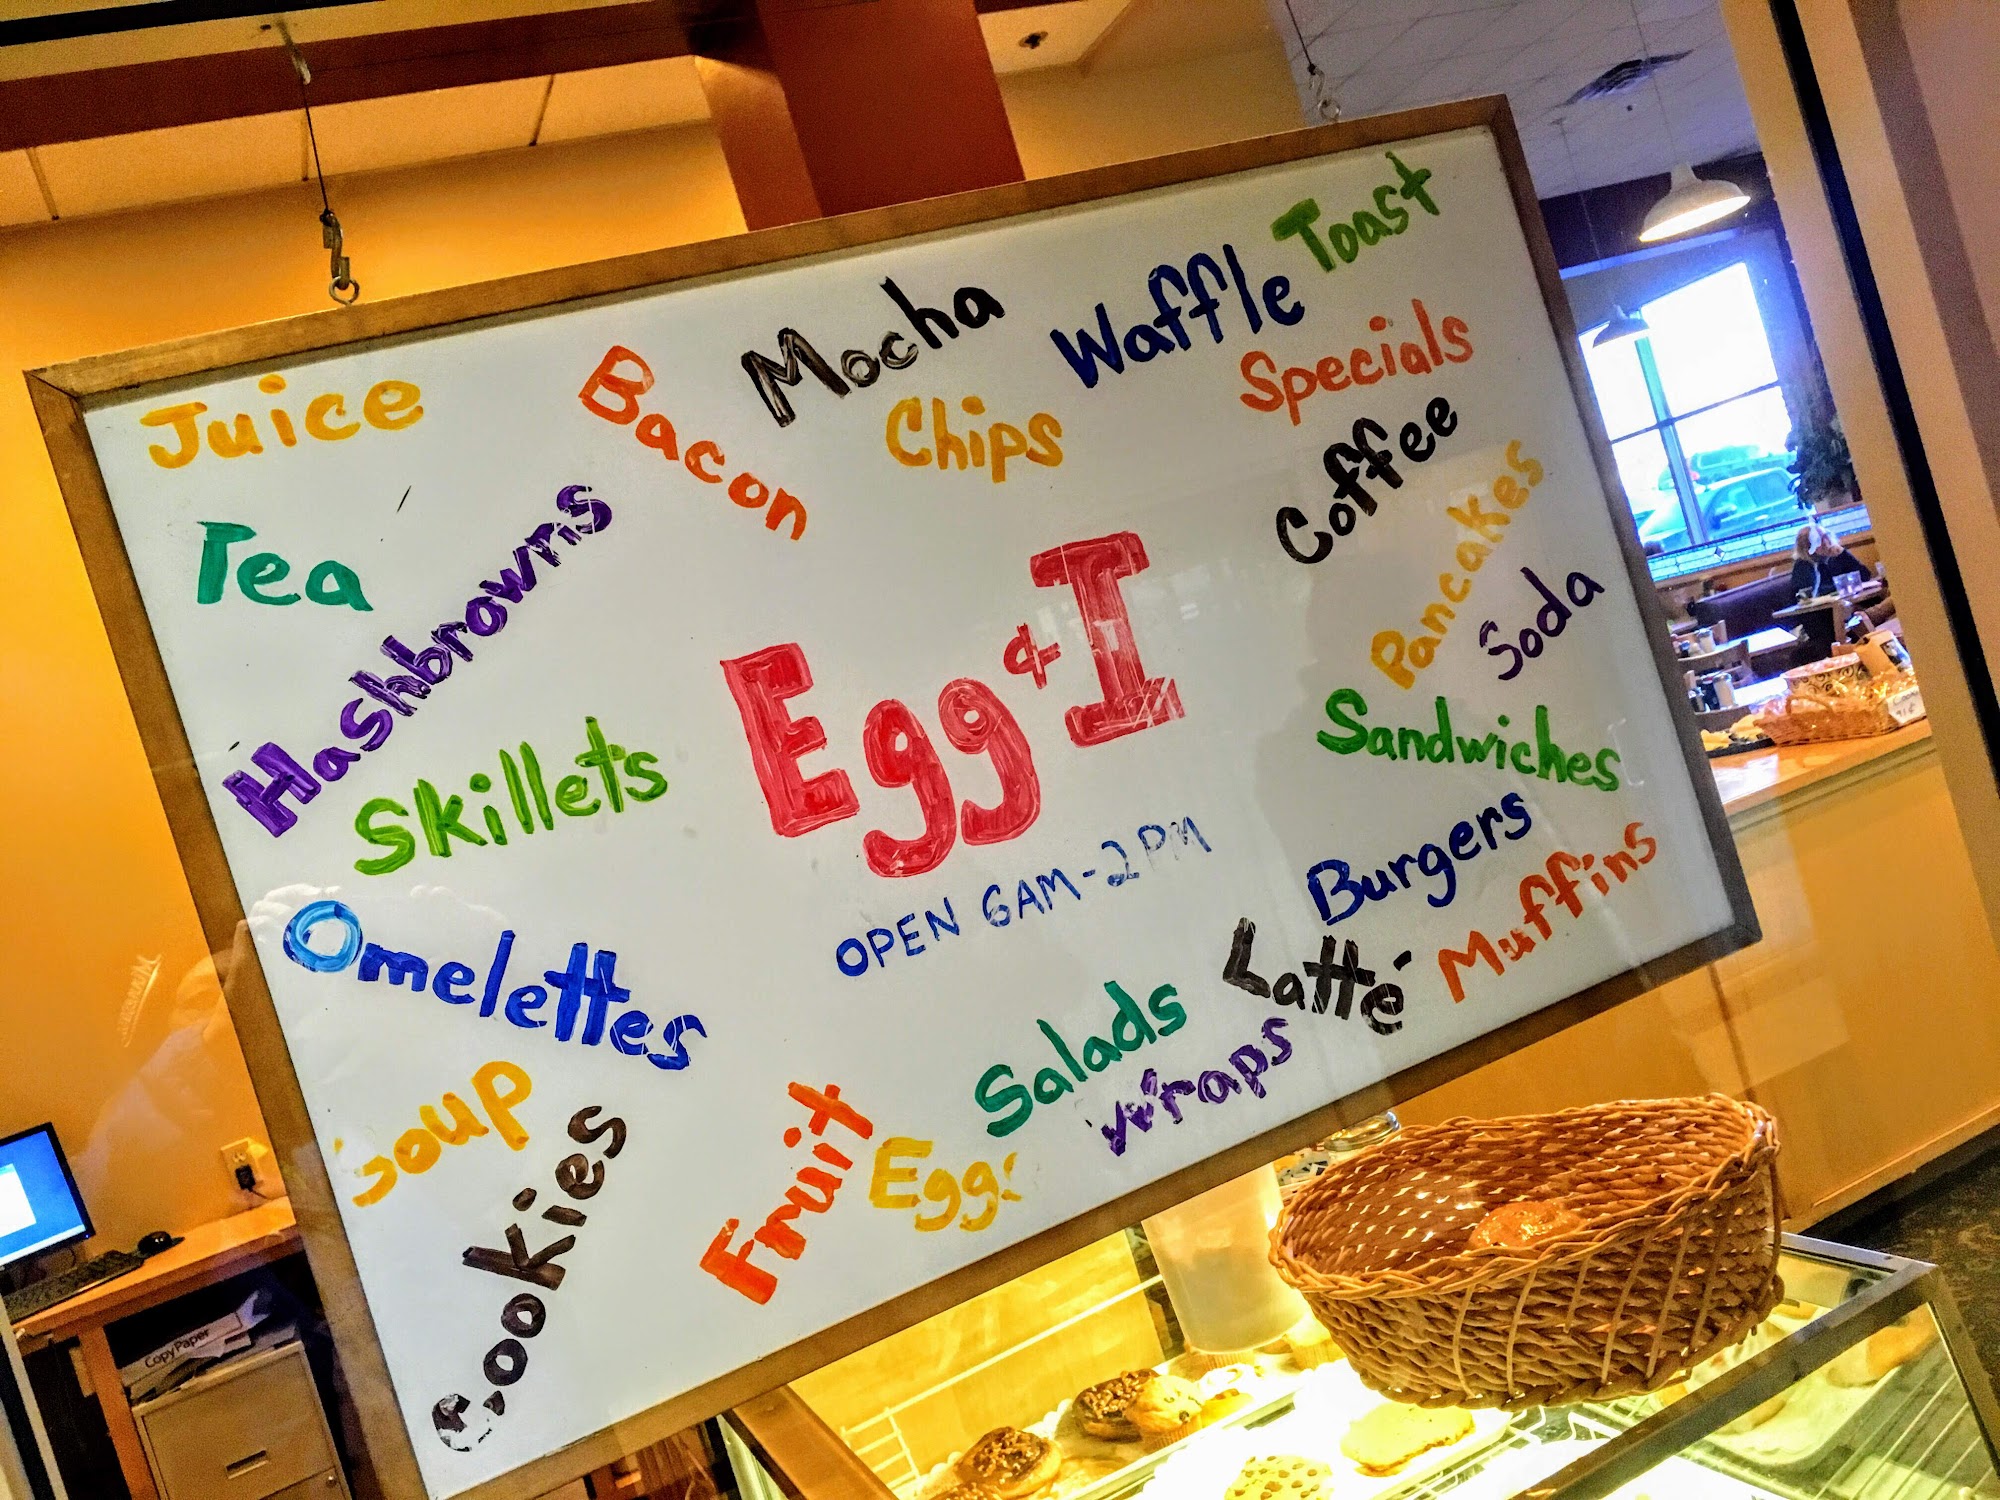 Juice
Bacon
Mocha
Waffle
Toast
Chips
Specials
Coffee
Tea
Hashbrowns
Pancakes
Soda
Skillets
Egg & I
Sandwiches
OPEN 6AM-2PM
Burgers
Muffins
Omelettes
Latté
Salads
Wraps
Soup
Cookies
Fruit
Eggs
Copy Paper